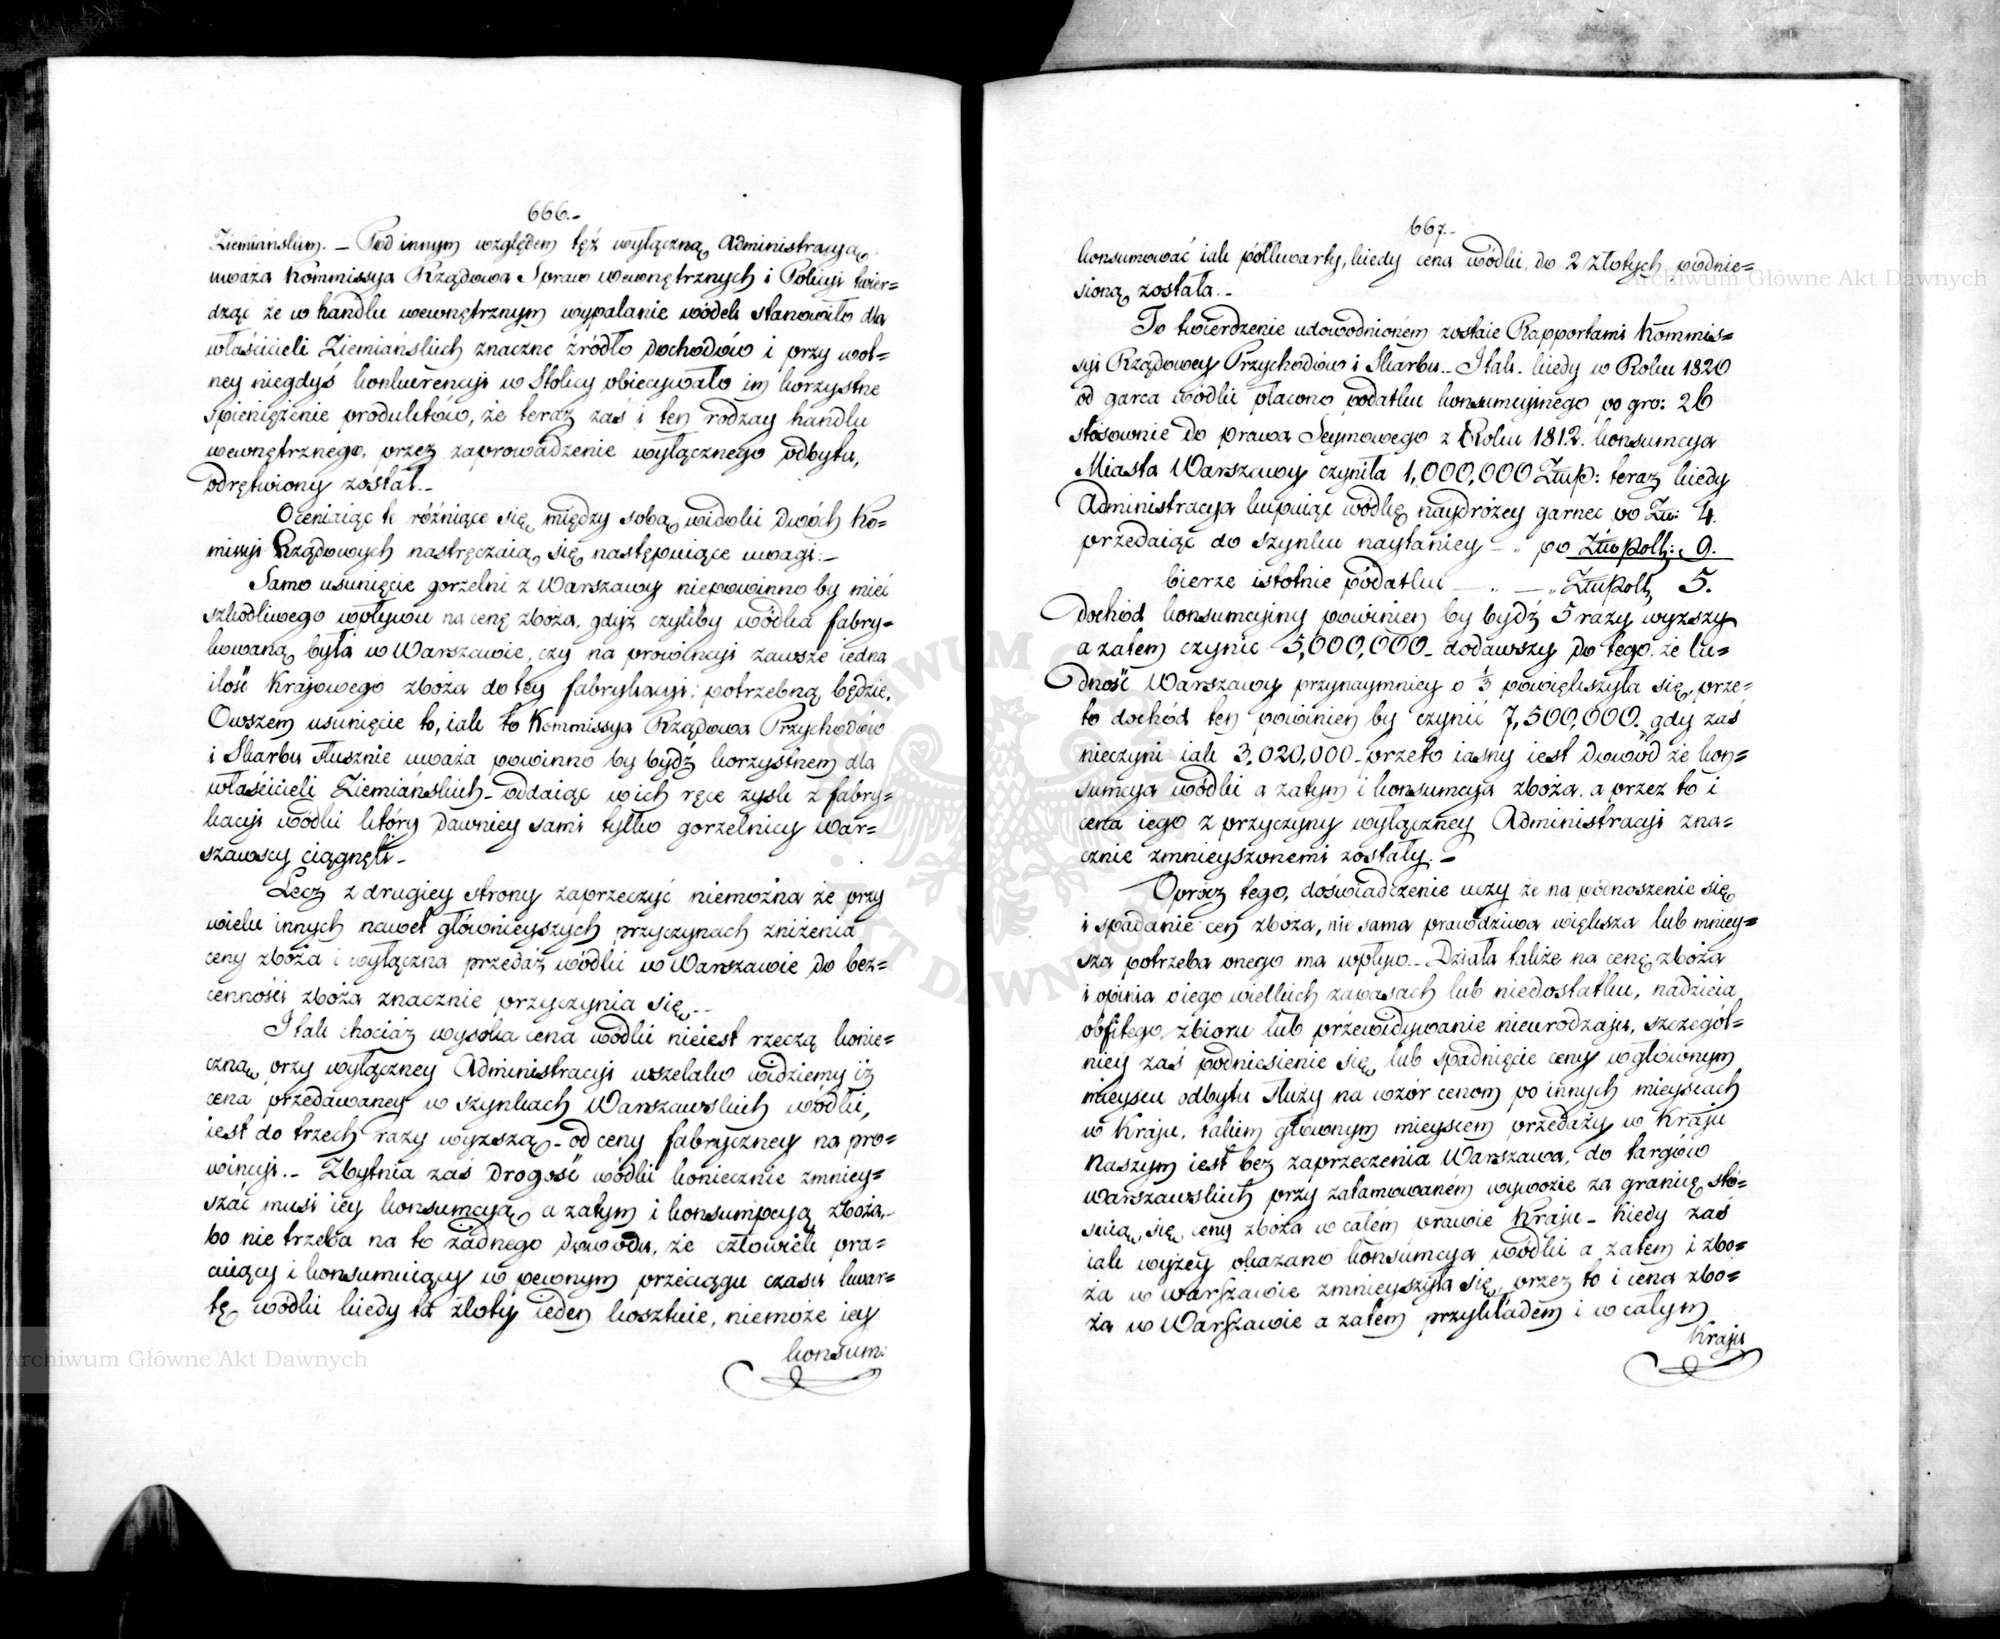 666.
Ziemiańskim. – Pod innym względem tęż wyłączną Administracyą
uważa Kommissya Rządowa Spraw Wewnętrznych i Policyi twier=
dząc że w handlu wewnętrznym wypalanie wódek stanowiło dla
właścicieli Ziemiańskich znaczne źródło dochodów i przy wol=
ney niegdyś konkurencyi w Stolicy obiecywało im korzystne
spieniężenie produktów, że teraz zaś i ten rodzay handlu
wewnętrznego, przez zaprowadzenie wyłącznego odbytu,
odrętwiony został. –
Oceniaiąc te różniące się między sobą widoki dwóch Ko=
missyi Rządowych nastręczaią się następuiące uwagi: –
Samo usunięcie gorzelni z Warszawy niepowinno by mieć
szkodliwego wpływu na cenę zboża, gdyż czyliby wódka fabry=
kowaną była w Warszawie, czy na prowincyi zawsze iedna
ilość Krajowego zboża do tey fabrykacyi potrzebną będzie.
Owszem usunięcie to, iak to Kommissya Rządowa Przychodów
i Skarbu słusznie uważa powinno by bydź korzystnem dla
właścicieli Ziemiańskich – oddaiąc w ich ręce zysk z fabry=
kacyi wódki który dawniey sami tylko gorzelnicy War=
szawscy ciągnęli –
Lecz z drugiey strony zaprzeczyć niemożna że przy
wielu innych nawet główniejszych przyczynach zniżenia
ceny zboża i wyłączna przedaż wódki w Warszawie do bez=
cenności zboża znacznie przyczynia się. –
I tak chociaż wysoka cena wódki nieiest rzeczą konie=
czną przy wyłączney Administracyi wszelako widziemy iż
cena przedawaney w szynkach Warszawskich wódki,
iest do trzech razy wyższą – od ceny fabryczney na pro=
wincyi. – Zbytnia zaś drogość wódki koniecznie zmniey=
szać musi iey konsumcyą a zatym i konsumpcyą zboża, –
bo nie trzeba na to żadnego dowodu, że człowiek pra=
cuiący i konsumuiący w pewnym przeciągu czasu kwar=
tę wódki kiedy ta złoty ieden kosztuie, niemoże iey
konsum:
667.
konsumować iak półkwarty, kiedy cena wódki do 2 złotych podnie=
sioną została. –
To twierdzenie udowodnionem zostaie Rapportami Kommis=
syi Rządowey Przychodów i Skarbu. – I tak. kiedy w Roku 1820
od garca wódki płacono podatku konsumcyinego po gro: 26
stosownie do prawa Seymowego z Roku 1812. konsumcya
Miasta Warszawy czyniła 1,000,000 Złłp: teraz kiedy
Administracya kupuiąc wódkę naydrożey garnec po Złł: 4.
przedaiąc do szynku naytaniey – „ po Złłpols: 9.
bierze istotnie podatku – „ – „ Złłpols 5.
dochód konsumcyiny powinien by bydź 5 razy wyższy
a zatem czynić 5,000,000 – dodawszy do tego, że lu=
dność Warszawy przynaymniey o ⅓ powiększyła się, prze=
to dochód ten powinien by czynić 7,500,000. gdy zaś
nieczyni iak 3,020,000 – przeto iasny iest dowód że kon=
sumcya wódki a zatym i konsumcya zboża, a przez to i
cena iego z przyczyny wyłączney Administracyi zna=
cznie zmnieyszonemi zostały. –
Oprócz tego, doświadczenie uczy że na podnoszenie się
i spadanie cen zboża, nie sama prawdziwa większa lub mniey=
sza potrzeba onego ma wpływ. – Działa także na cenę zboża
i opinia o iego wielkich zapasach lub niedostatku, nadzieia
obfitego zbioru lub przewidywanie nieurodzaju, szczegól=
niey zaś podniesienie się lub spadnięcie ceny w głównym
mieyscu odbytu służy na wzór cenom po innych mieyscach
w Kraju, takiem głównym mieyscem przedaży w Kraju
naszym iest bez zaprzeczenia Warszawa, do targów
Warszawskich przy zatamowaném wywozie za granicę sto=
suią się ceny zboża w całém prawie Kraju – Kiedy zaś
iak wyżey okazano konsumcya wódki a zatem i zbo=
ża w Warszawie zmnieyszyła się, przez to i cena zbo=
ża w Warszawie a zatem przykładem i w całym
Kraju
Archiwum Główne Akt Dawnych
Archiwum Główne Akt Dawnych